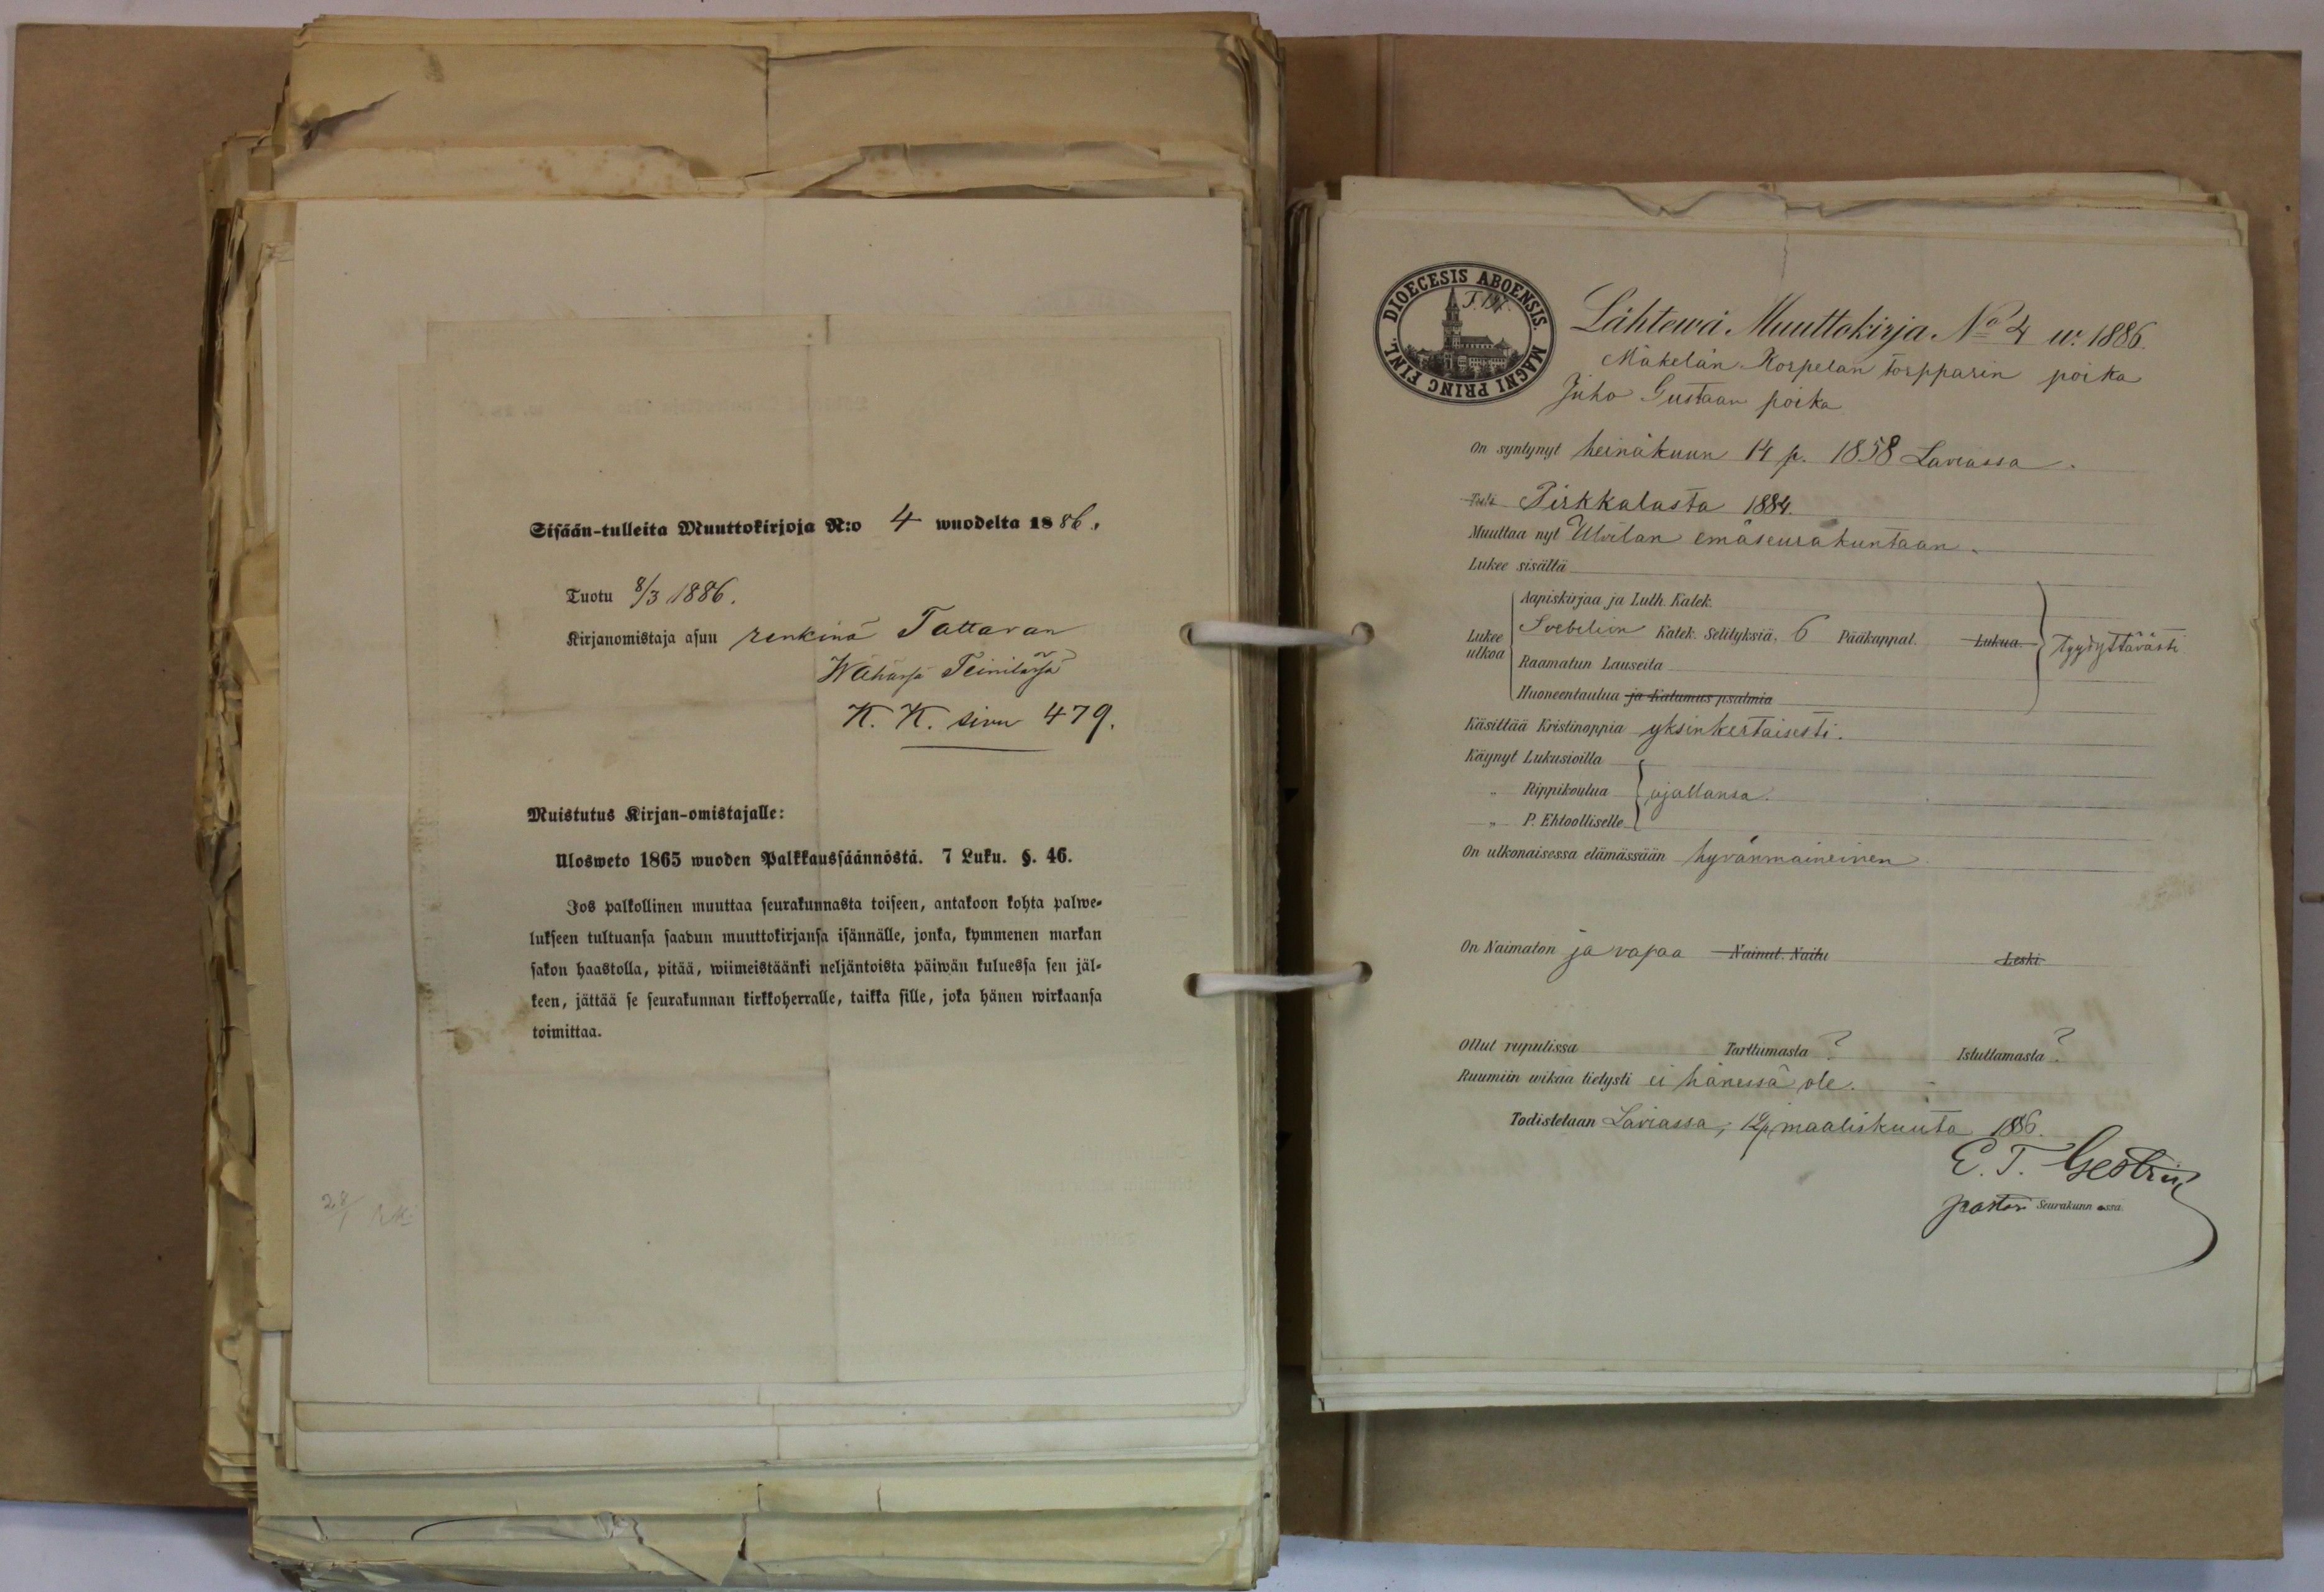 Sisään-tulleita Muuttokirjoja N:o 4 wuodelta 1886.
Tuotu 8/3 1886.
Kirjanomistaja asuu renkinä Tattaran
Wähässä Teinilässä
K. K. sivu 479.
Muistutus Kirjan-omistajalle:
Ulosweto 1865 wuoden Palkkaussäännöstä. 7 Luku. §. 46.
Jos palkollinen muuttaa seurakunnasta toiseen, antakoon kohta palwe-
lukseen tultuansa saadun muuttokirjansa isännälle, jonka, kymmenen markan
sakon haastolla, pitää, wiimeistäänki neljäntoista päiwän kuluessa sen jäl-
keen, jättää se seurakunnan kirkkoherralle, taikka sille, joka hänen wirkaansa
toimittaa.
28/1
DIOECESIS ABOENSIS. MAGNI PRINC FINL.
Lähtewä Muuttokirja No 4 w. 1886.
Mäkelän Korpelan torpparin poika
Juho Gustaan poika
On syntynyt heinäkuun 14 p. 1858 Laviassa.
Tuli Pirkkalasta 1884.
Muuttaa nyt Ulvilan emäseurakuntaan.
Lukee sisältä
Aapiskirjaa ja Luth. Katek.
Lukee ulkoa Svebelion Katek. Selityksiä. 6 Pääkappal. Lukua. tyydyttävästi
Raamatun Lauseita
Huoneentaulua ja Katumus psalmia
Käsittää Kristinoppia yksinkertaisesti.
Käynyt Lukusioilla
" Rippikoulua ajallansa.
" P. Ehtoolliselle
On ulkonaisessa elämässään hyvänmaineinen
On Naimaton ja vapaa Nainut. Naitu Leski
Ollut rupulissa Tarttumasta ? Istuttamasta ?
Ruumiin wikaa tietysti ei hänessä ole.
Todistetaan Laviassa, 12 p. maaliskuuta 1886.
E. T. Gestrin
pastor Seurakunn assa.